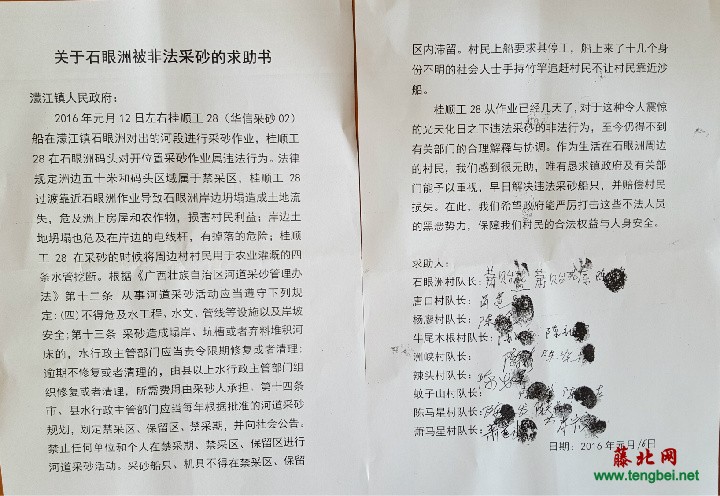 关于石眼洲被非法采砂的求助书
濛江镇人民政府：
2016年元月12日左右桂顺工28（华信采砂02）
船在濛江镇石眼洲对出的河段进行采砂作业，桂顺工
28在石眼洲码头对开位置采砂作业属违法行为。法律
规定洲边五十米和码头区域属于禁采区，桂顺工28
过渡靠近石眼洲作业导致石眼洲岸边坍塌造成土地流
失，危及洲上房屋和农作物，损害村民利益；岸边土
地坍塌也危及在岸边的电线杆，有掉落的危险；桂顺
工28在采砂的时候将周边村村民用于农业灌溉的四
条水管挖断。根据《广西壮族自治区河道采砂管理办
法》第十二条 从事河道采砂活动应当遵守下列规
定：(四)不得危及水工程、水文、管线等设施以及岸坡
安全；第十三条 采砂造成塌岸、坑槽或者弃料堆积河
床的，水行政主管部门应当责令限期修复或者清理；
逾期不修复或者清理的，由县以上水行政主管部门组
织修复或者清理，所需费用由采砂人承担。第十四条
市、县水行政主管部门应当每年根据批准的河道采砂
规划，划定禁采区、保留区、禁采期，并向社会公告。
禁止任何单位和个人在禁采期、禁采区、保留区进行
河道采砂活动。采砂船只、机具不得在禁采区、保留
区内滞留。村民上船要求其停工，船上来了十几个身
份不明的社会人士手持竹竿追赶村民不让村民靠近沙
船。
桂顺工28从作业已经几天了，对于这种令人震惊
的光天化日之下违法采砂的非法行为，至今仍得不到
有关部门的合理解释与协调。作为生活在石眼洲周边
的村民，我们感到很无助，唯有恳求镇政府及有关部
门能予以重视，早日解决违法采砂船只，并赔偿村民
损失。在此，我们希望政府能严厉打击这些不法人员
的罪恶势力，保障我们村民的合法权益与人身安全。
求助人：
石眼洲村队长：
唐口村队长：
杨廖村队长：
牛尾木根村队长：
洲峡村队长：
辣头村队长：
蚊子山村队长：
陈马星村队长：
萧马星村队长：
日期：2016年元月16日
藤北网
www.tengbei.net